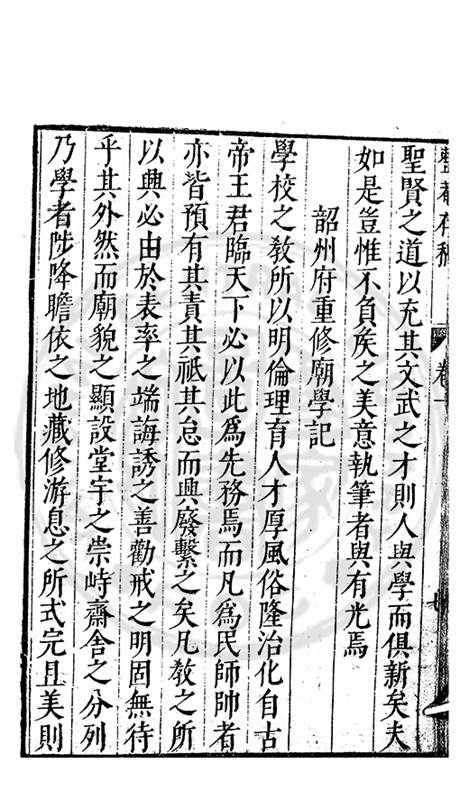 整菴存稿 卷一
聖賢之道以充其文武之才則人與學而俱新矣夫
如是豈惟不負矦之美意執筆者與有光焉
韶州府重修廟學記
學校之敎所以明倫理育人才厚風俗隆治化自古
帝王君臨天下必以此爲先務焉而凡爲民師帥者
亦皆預有其責其祗其怠而興廢繫之矣凡敎之所
以興必由於表率之端誨誘之善勸戒之明固無待
乎其外然而廟貌之顯設堂宇之崇峙齋舍之分列
乃學者陟降瞻依之地藏修游息之所式完且美則